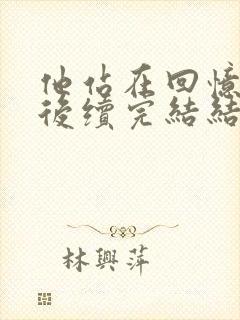 他佔在回憶
後續完結結
林興萍